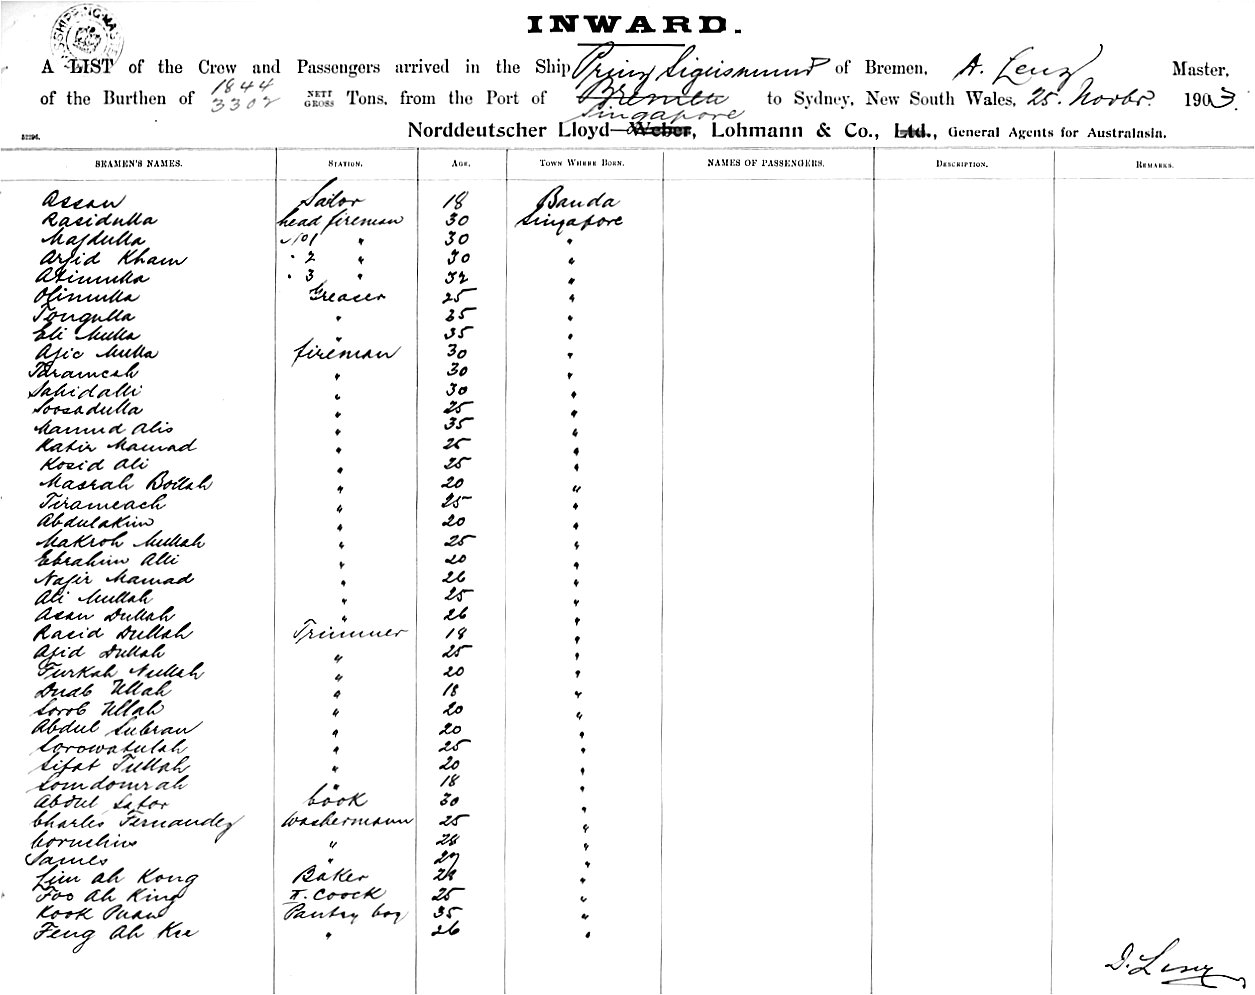 INWARD.
A LIST of the Crew and Passengers arrived in the Ship Prinz Sigismund of Bremen, A. Lenz Master,
of the Burthen of 1844 3302 NETT GROSS Tons, from the Port of Bremen Singapore to Sydney, New South Wales, 25. Novbr. 1903.
52296. Norddeutscher Lloyd Weber, Lohmann & Co., Ltd., General Agents for Australasia.
SEAMEN'S NAMES. STATION. AGE. TOWN WHERE BORN. NAMES OF PASSENGERS. DESCRIPTION. REMARKS.
Assan Sailor 18 Banda
Rasidulla head fireman 30 Singapore
Majdulla No 1 " 30 "
Arjid Kham " 2 " 30 "
Atimulla " 3 " 32 "
Ofimulla Greaser 25 "
Tongulla " 25 "
Eli Mulla " 35 "
Ajic Mulla fireman 30 "
Parameah " 30 "
Sahidalli " 30 "
Soosadulla " 25 "
Mamud Alis " 35 "
Katir Mamad " 25 "
Kosid Ali " 25 "
Masrah Bollah " 20 "
Tirameach " 25 "
Abdulakim " 20 "
Makroh Mullah " 25 "
Ebrahim Alli " 20 "
Najir Mamad " 26 "
Ali Mullah " 25 "
Asan Dullah " 26 "
Rasid Dullah Trimmer 18 "
Ajid Dullah " 25 "
Furkah Nullah " 20 "
Duab Ullah " 18 "
Sorob Ullah " 20 "
Abdul Subran " 20 "
Sorowatulah " 25 "
Sifat Tullah " 20 "
Somdomrah " 18 "
Abdul Safor Cook 30 "
Charles Fernandez Washermann 25 "
Cornelius " 28 "
James " 27 "
Lim Ah Kong Baker 28 "
Foo Ah King II. Coock 25 "
Kook Puan Pantry boy 35 "
Feng Ah Kee " 26 "
Lenz